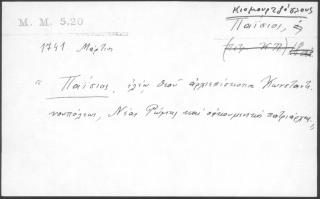 Κιομουρτζόγλους
M. M. 5.20
Παΐσιος, ὁ
1741 Μάρτιος
" Παΐσιος, ἐλέῳ Θεοῦ ἀρχιεπίσκοπος Κωνσταντι
νουπόλεως, Νέας Ῥώμης καὶ οἰκουμενικὸς πατριάρχης.